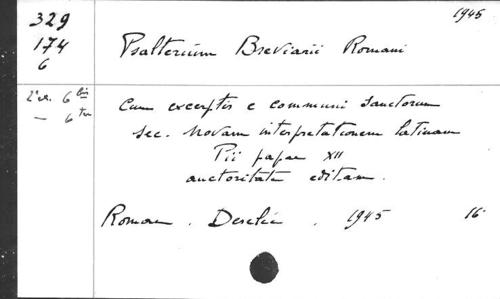 1945
329
174
6
Psalterium Breviarii Romani
2 ex. 6 bis
— 6 ter
Cum excerptis e communi sanctorum
sec. novam interpretationem latinam
Pii papae XII
auctoritate editam.
Romae. Desclée. 1945 16°